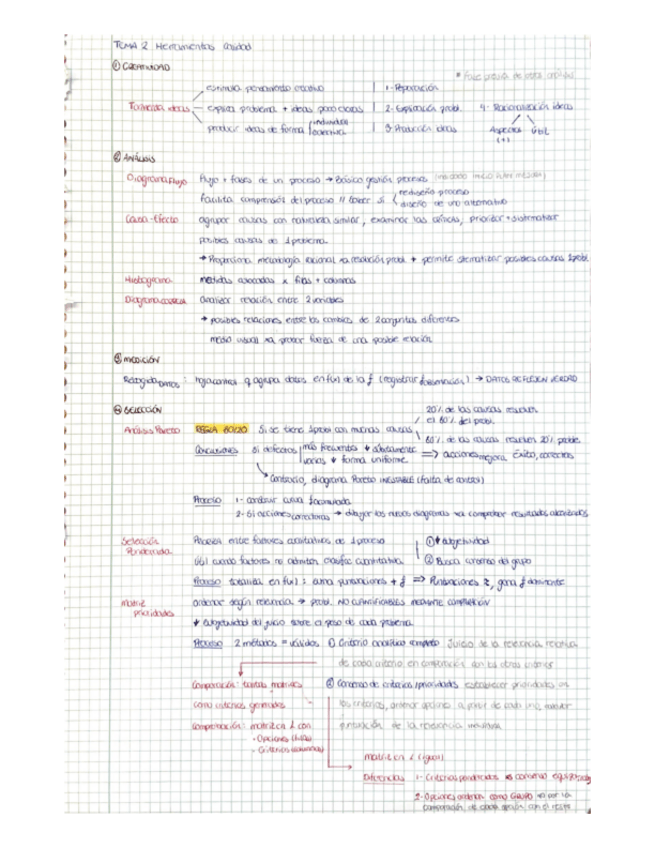 TEMA 2 Herramientas Calidad
① CREATIVIDAD
* Fase previa de otros análisis
estimula pensamiento creativo
1- Preparación
Tormenta ideas
explica problema + ideas para claras
2- Explicación probl.
4- Racionalización ideas
producir ideas de forma individual
3- Producción ideas
Aspectos (+)
útil
② ANÁLISIS
Diagrama Flujo
Flujo + fases de un proceso → Básico gestión procesos
Facilita comprensión del proceso // favor si
rediseño proceso
diseño de uno alternativo
Causa-Efecto
agrupar causas con naturaleza similar, examinar las críticas, priorizar + sistematizar
posibles causas de 1 problema.
→ Proporciona metodología racional resolución probl + permite sistematizar posibles causas 1 probl
Histograma
medidas asociadas x filas + columnas
Diagrama
analizar relación entre 2 variables
→ posibles relaciones entre los cambios de 2 conjuntos diferentes
medio visual probar fuerza de una posible relación
③ MEDICIÓN
Recogida DATOS : hoja control q agrupa datos en fu( de la f (registrar información) → DATOS REFLEJEN VERDAD
④ SELECCIÓN
20% de las causas resuelven
el 80% del probl.
Análisis Pareto
REGLA 80/20
Si se tiene 1 probl con muchas causas
80% de las causas resuelven 20% probl
Conclusiones
Si defectos
más frecuentes ↓ abiertamente
varios ↓ forma uniforme
⇒ acciones mejora, éxito, correctas
Contrario, diagrama Pareto INESTABLE (falta de control)
Proceso
1- construir curva f acumulada
2- Si acciones correctoras → dibujar los nuevos diagramas comprobar resultados alcanzados
Selección
Ponderada
entre factores cualitativos de 1 proceso
① ↓ subjetividad
útil cuando factores no admiten clasific cuantitativa
② Busca consenso del grupo
Proceso
suma puntuaciones + f ⇒ Puntuaciones
gana f dominante
Matriz
prioridades
ordenar según relevancia → probl. NO CUANTIFICABLES MEDIANTE COMPARACIÓN
↓ subjetividad del juicio sobre el peso de cada problema
Proceso
2 métodos = válidos
① Criterio analítico completo
Juicio de la relevancia relativa
de cada criterio en comparación con los otros criterios
Comparación: tantas matrices
② Consenso de criterios/prioridades
establecer prioridades en
como criterios generados
los criterios, ordenar opciones a partir de cada uno,
Comparación: matriz en L con
de la relevancia individual
· Opciones (filas)
· Criterios (columnas)
matriz en L (igual)
Diferencias
1- Criterios ponderados
consenso
2- Opciones ordenan como GRUPO
por la
comparación de cada opción con el resto